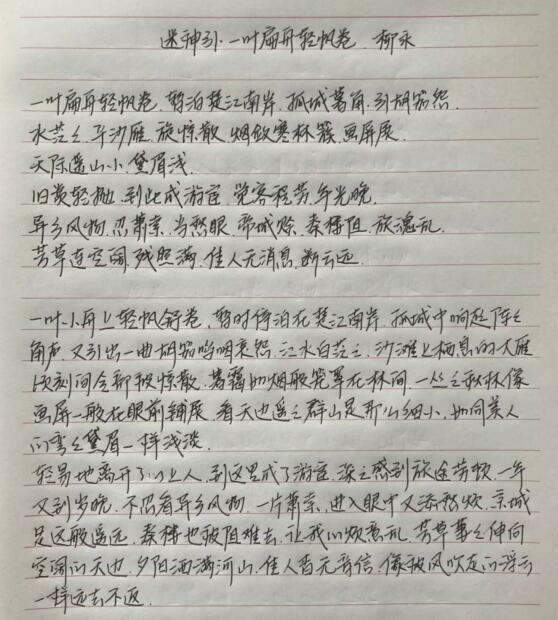 迷神引·一叶扁舟轻帆卷 柳永
一叶扁舟轻帆卷，暂泊楚江南岸，孤城暮角，引胡笳怨，
水茫茫，平沙雁，旋惊散，烟敛寒林簇，画屏展，
天际遥山小，黛眉浅，
旧赏轻抛，到此成游宦，觉客程劳，年光晚，
异乡风物，忍萧索，当愁眼，帝城赊，秦楼阻，旅魂乱，
芳草连空阔，残照满，佳人无消息，断云远，
一叶小舟上轻帆舒卷，暂时停泊在楚江南岸，孤城中响起阵阵
角声，又引出一曲胡笳呜咽哀怨，江水白茫茫，沙滩上栖息的大雁
顷刻间全部被惊散，暮霭如烟般笼罩在林间，一丛丛秋林像
画屏一般在眼前铺展，看天边遥遥群山是那么细小，如同美人
的弯弯黛眉一样浅淡，
轻易地离开了心上人，到这里成了游宦，深深感到旅途劳顿，一年
又到岁晚，不忍看异乡风物，一片萧索，进入眼中又添愁烦，京城
是这般遥远，秦楼也被阻难去，让我心烦意乱，芳草萋萋伸向
空阔的天边，夕阳洒满河山，佳人杳无音信，像被风吹走的浮云
一样远去不返，